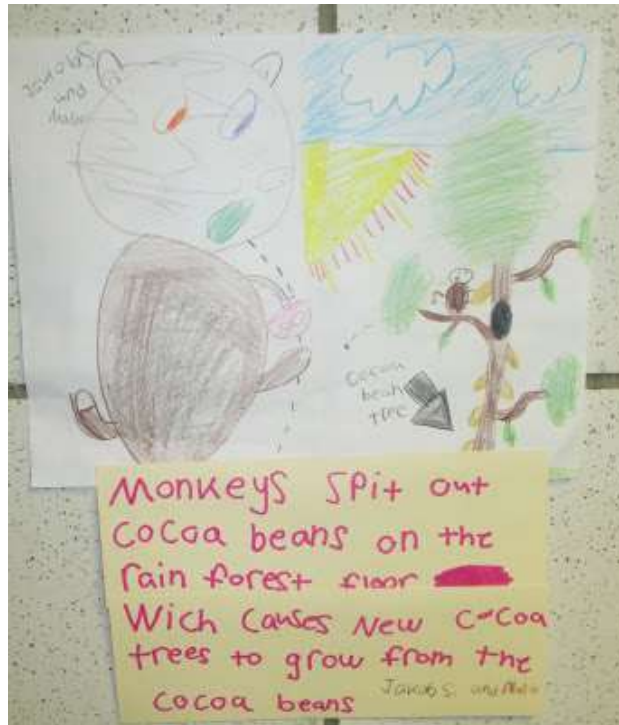 Jakob S
and
cocoa
bean
tree
Monkeys spit out
cocoa beans on the
rain forest floor
Wich causes New cocoa
trees to grow from the
cocoa beans
Jakob S. and